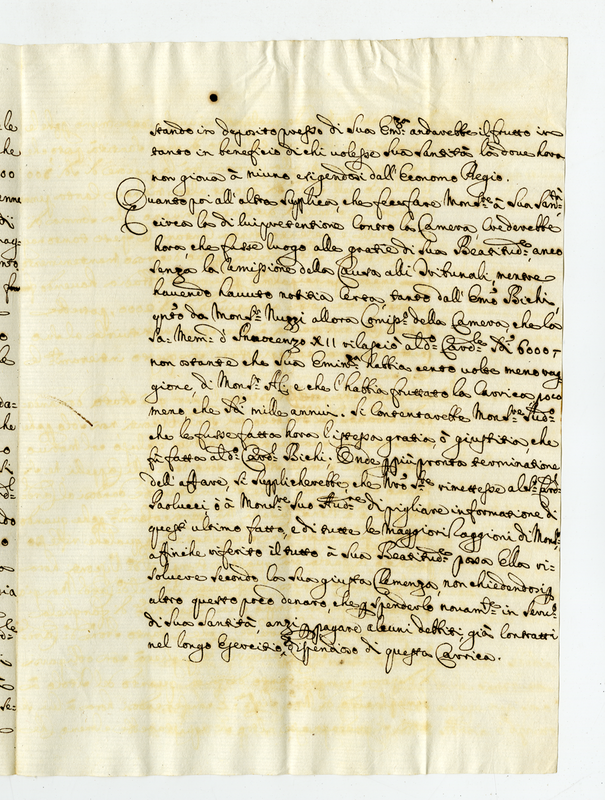 stando in deposito presso di Sua Em.za andarebbe il frutto in
tanto in beneficio di chi volesse Sua Santità là dove hora
non giova à niuno esigendosi dall'Economo Regio.
Quanto poi all'altra supplica, che fece fare Mons.re à Sua San.tà
circa la di lui pretentione contro la Camera, crederebbe
hora, che fusse luogo alle gratie di Sua Beatitud.e anco
senza la comissione della Causa alli Tribunali, mentre
havendo havuto notitia certa tanto dall'Em.o Bichi
q.nto da Mons.r Nuzzi allora Comiss.o della Camera, che la
Sa: Mem: d'Innocenzo XII rilasciò al d.o Card.le 6000,
non ostante che Sua Emin.za habbia cento volte meno rag
gione, di Mons.r e che l'habbia fruttato la Carrica poco
meno che mille annui. Si contentarebbe Mons.re Sud.o
che le fusse fatta hora l'istessa gratia ò giustitia, che
fù fatta al d.o Card.l Bichi. Onde p più pronta terminatione
dell'affare si supplicherebbe, che Nro S.re rimettesse al S.r Card.
Paolucci ò à Mons.re Suo Aud.re di pigliare informatione di
quest'ultimo fatto, e di tutte le maggiori raggioni di Mons.re
affinche riferito il tutto à Sua Beatitud.e possa Ella ri=
solvere secondo la sua giusta Clemenza, non chiedendosi p
altro questo poco denaro, che p spenderlo novam.te in serv.o
di Sua Santità, anzi p pagare alcuni debbiti già contratti
nel longo Esercitio, e dispendioso di questa Carrica.